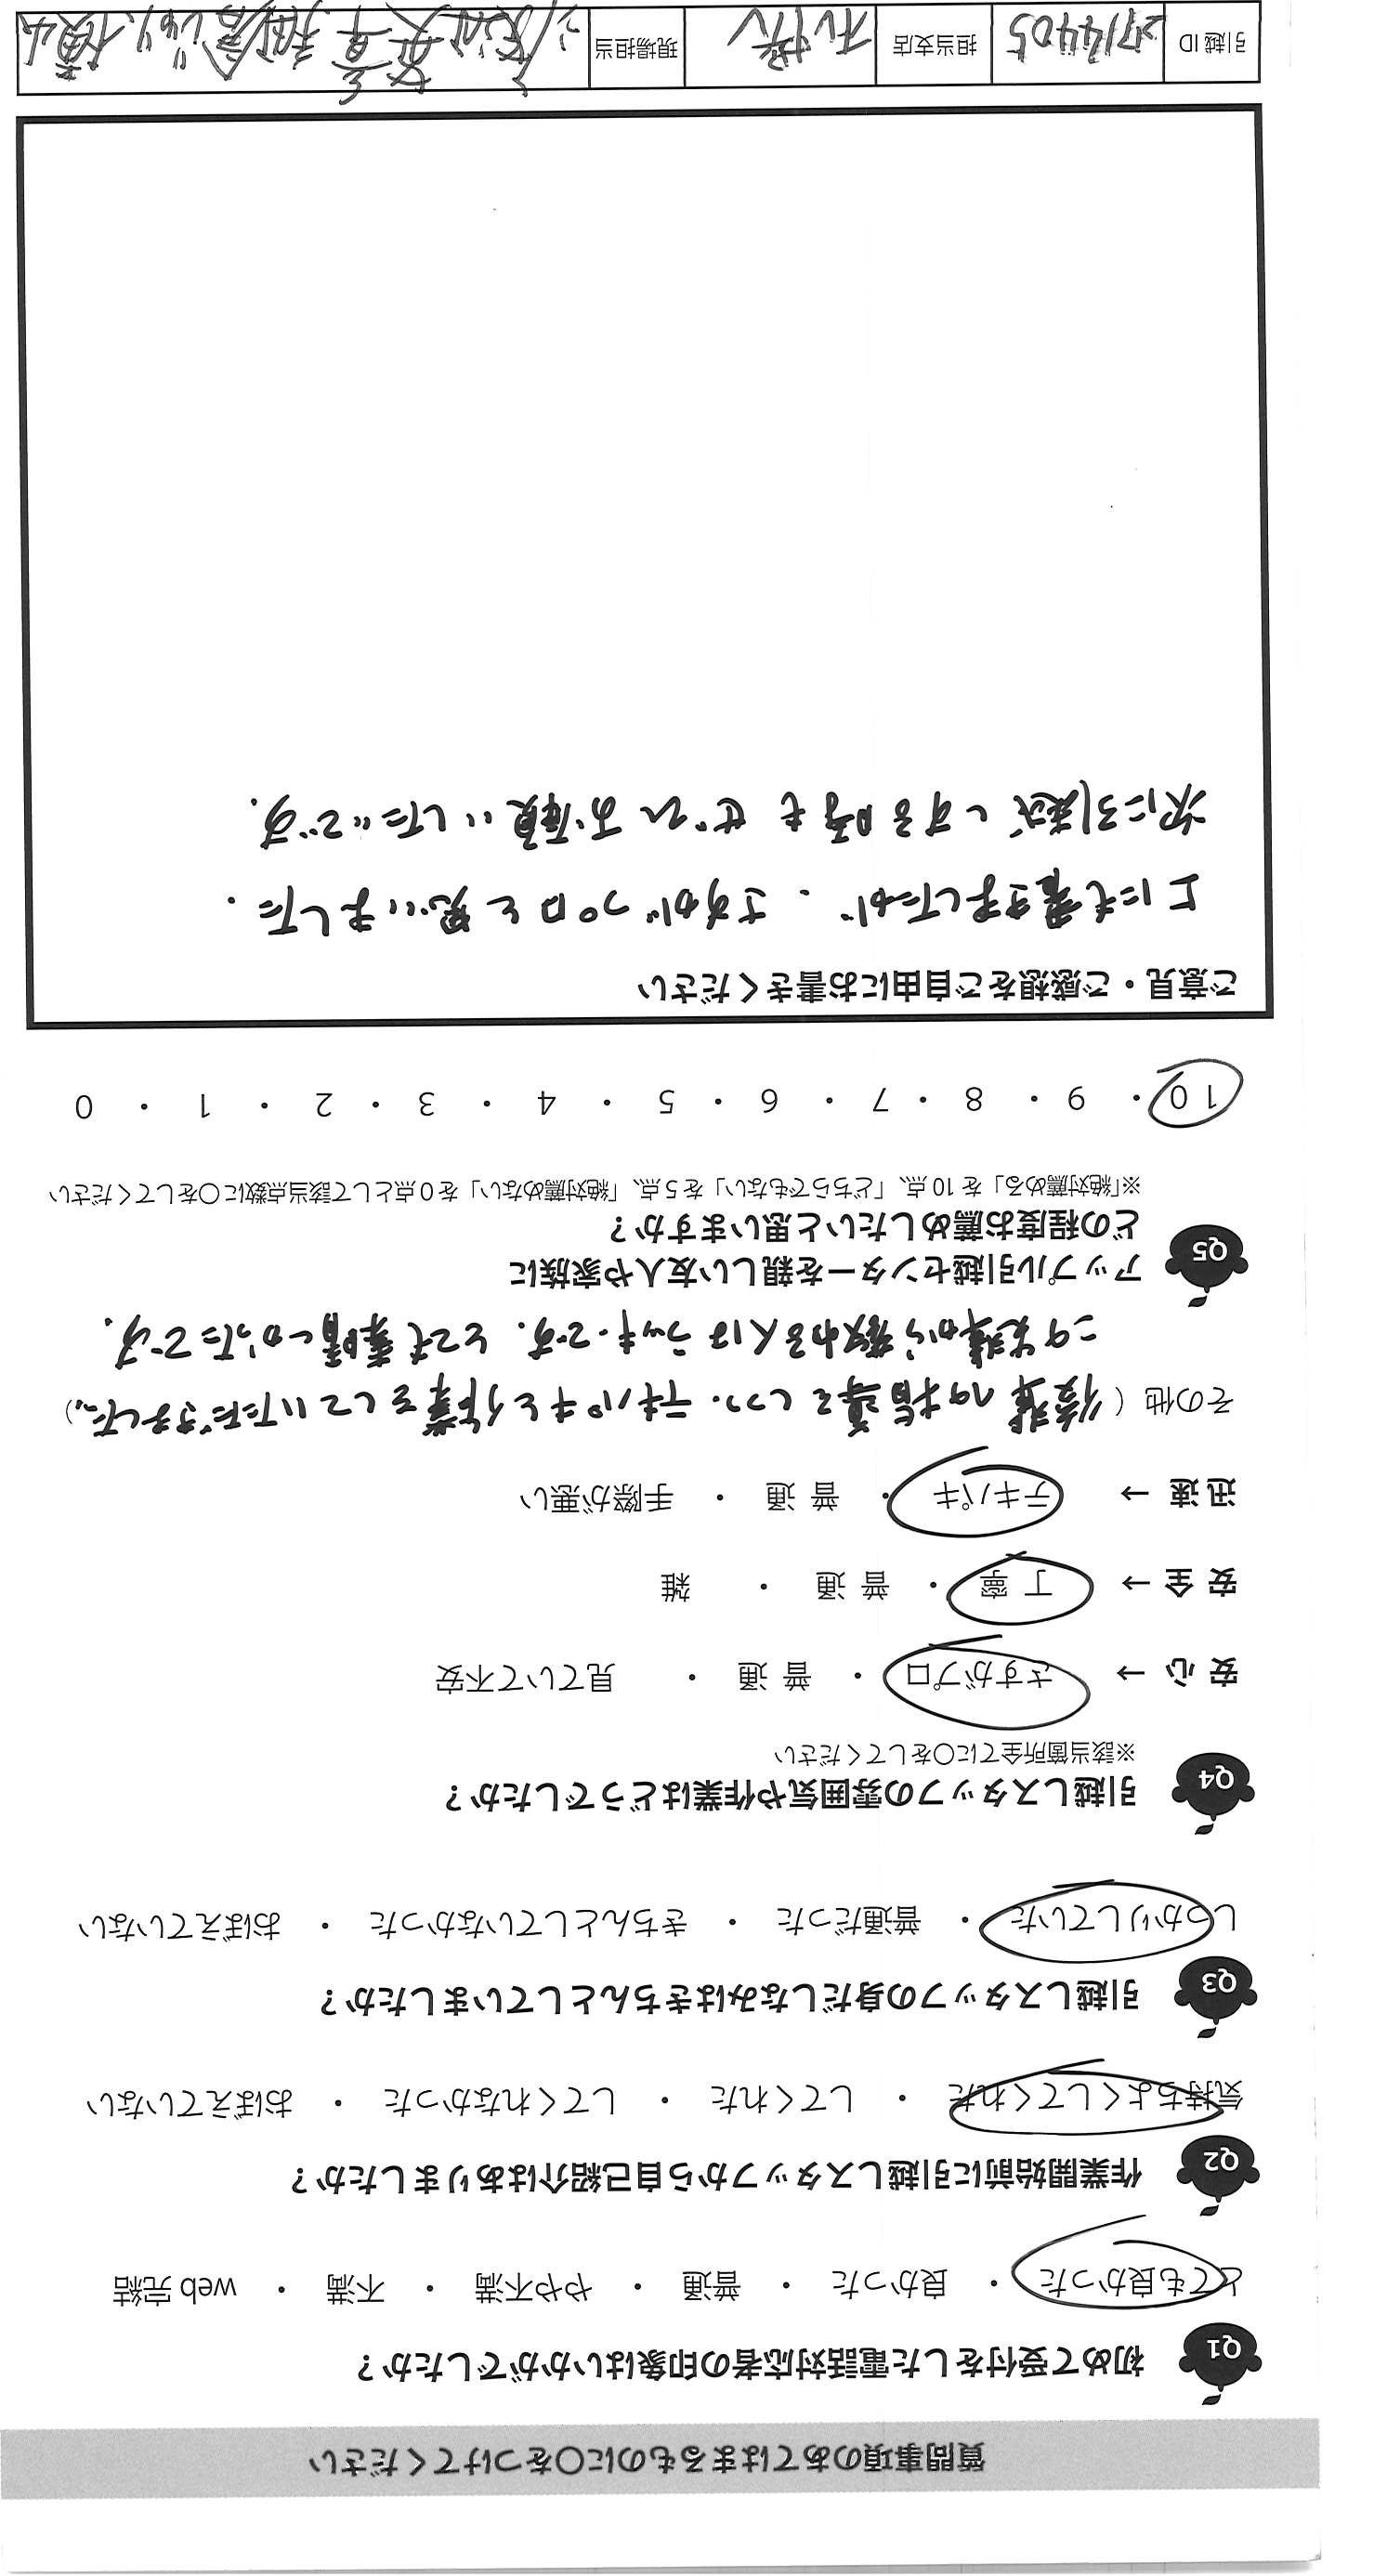 質問事項のあてはまるものに○をつけてください
Q1 初めて受付をした電話対応者の印象はいかがでしたか？
とても良かった ・ 良かった ・ 普通 ・ やや不満 ・ 不満 ・ web 完結
Q2 作業開始前に引越しスタッフから自己紹介はありましたか？
気持ちよくしてくれた ・ してくれた ・ してくれなかった ・ おぼえていない
Q3 引越しスタッフの身だしなみはきちんとしていましたか？
しっかりしていた ・ 普通だった ・ きちんとしていなかった ・ おぼえていない
Q4 引越しスタッフの雰囲気や作業はどうでしたか？
※該当箇所全てに○をしてください
安 心 → さすがプロ ・ 普 通 ・ 見ていて不安
安 全 → 丁 寧 ・ 普 通 ・ 雑
迅 速 → テキパキ ・ 普 通 ・ 手際が悪い
その他（ 後輩への指導をしつつ、テキパキと作業をしていただきました。）
この先輩から教わる人はラッキーです。とても素晴しかったです。
Q5 アップル引越センターを親しい友人や家族に
どの程度お薦めしたいと思いますか？
※「絶対薦める」を 10 点、「どちらでもない」を 5 点、「絶対薦めない」を 0 点として該当点数に○をしてください
10 ・ 9 ・ 8 ・ 7 ・ 6 ・ 5 ・ 4 ・ 3 ・ 2 ・ 1 ・ 0
ご意見・ご感想をご自由にお書きください
上にも書きましたが、さすがプロと思いました。
次に引越しする時もぜひお願いしたいです。
引越 ID 2714405 担当支店 札幌 現場担当